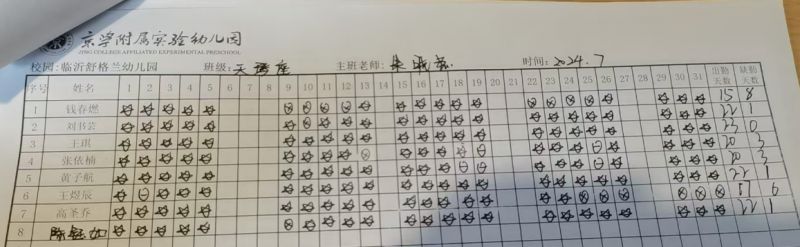 京学附属实验幼儿园
JING COLLEGE AFFILIATED EXPERIMENTAL PRESCHOOL
校园:临沂舒格兰幼儿园 班级: 天 座 主班老师: 时间: 2024.7
序号 姓名 1 2 3 4 5 6 7 8 9 10 11 12 13 14 15 16 17 18 19 20 21 22 23 24 25 26 27 28 29 30 31 出勤天数 缺勤天数
1 钱春燃 15 8
2 刘书芸 22 1
3 王琪 23 0
4 张依楠 20 3
5 黄子航 20 3
6 王煜辰 22 1
7 高圣乔 17 6
8 陈钰如 22 1